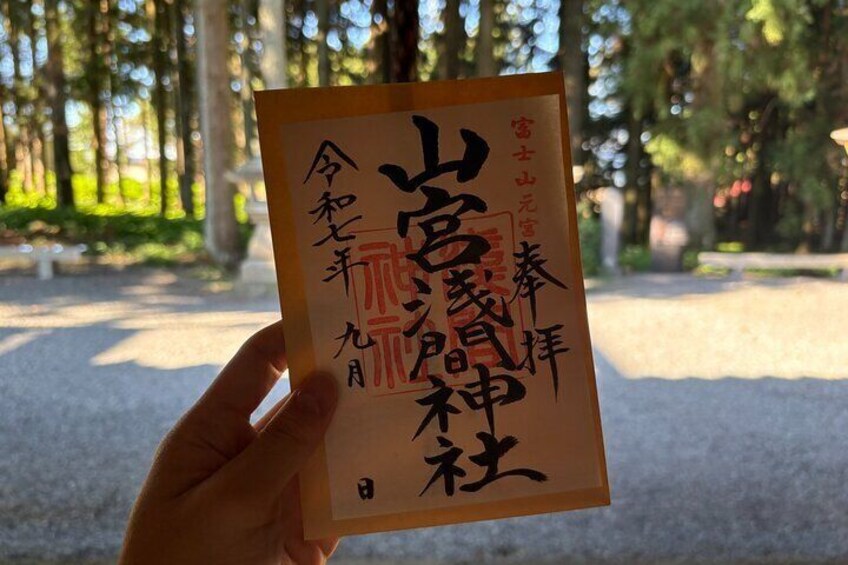 富士山元宮
奉拝
山宮浅間神社
令和七年 九月 日
浅間
神社